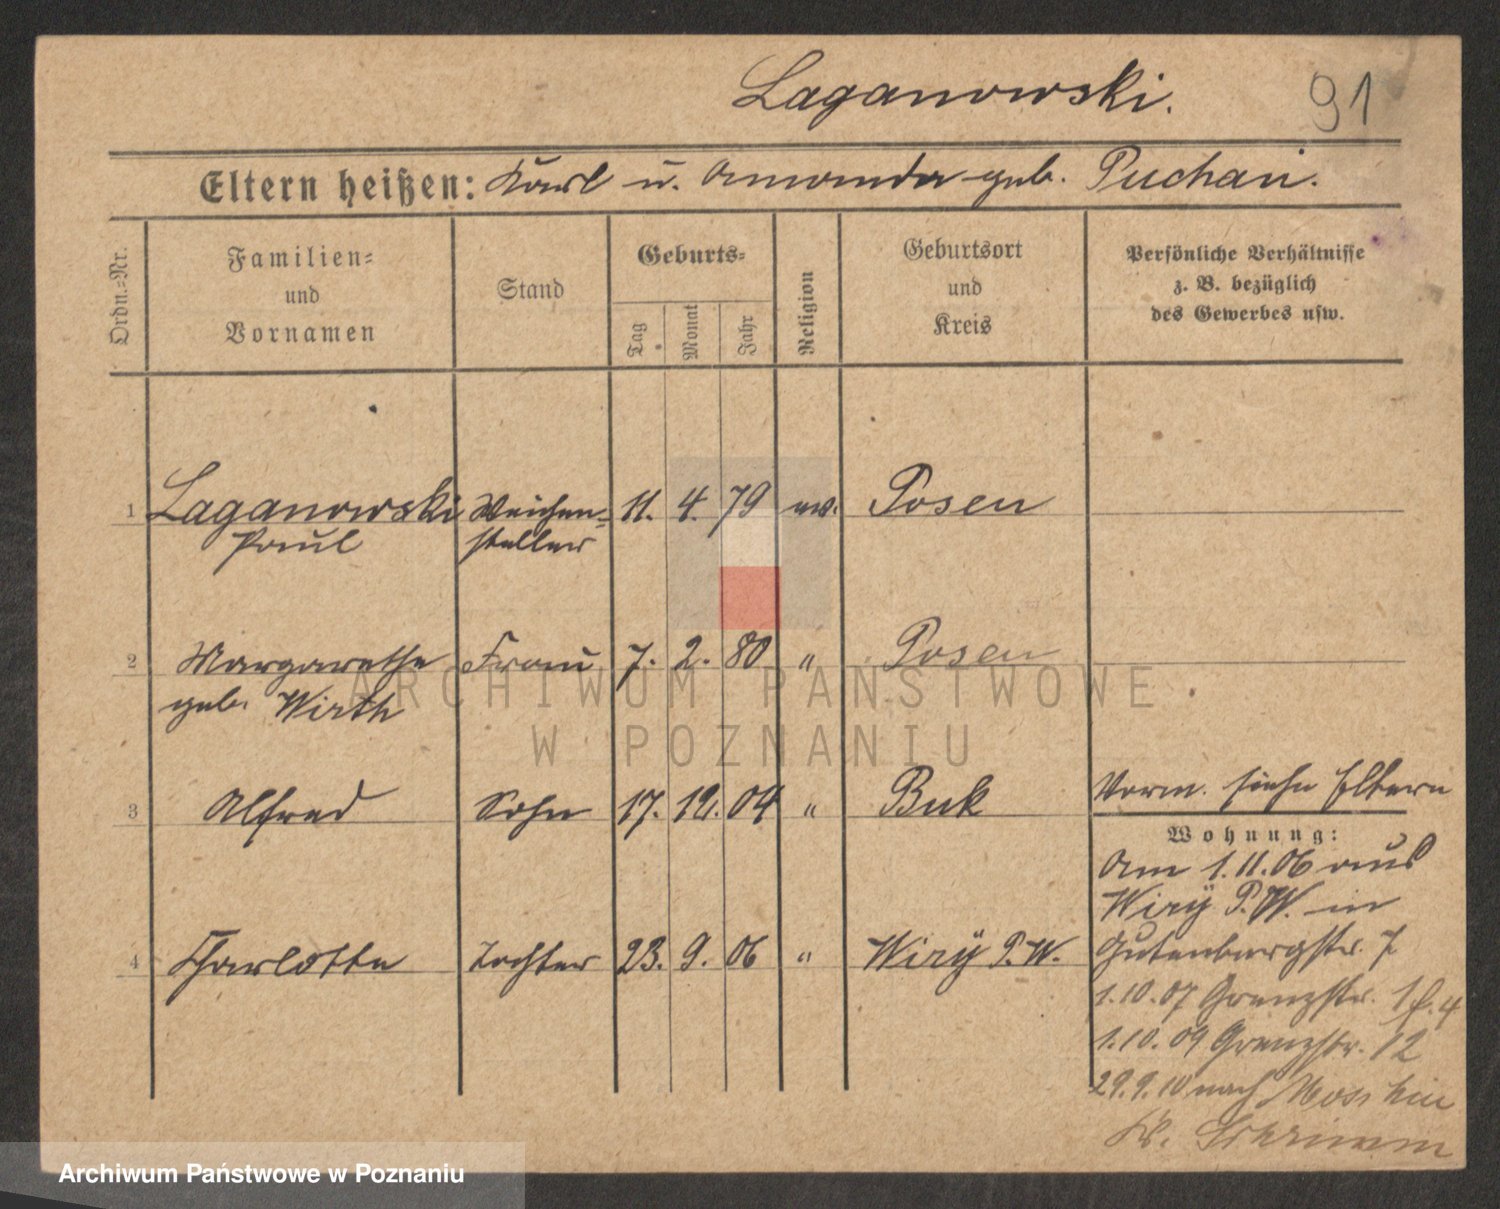 Laganowski.
91
Eltern heißen: Karl u. Amanda geb. Puchan.
Ordn.-Nr.
Familien-
und
Vornamen
Stand
Geburts-
Tag
Monat
Jahr
Religion
Geburtsort
und
Kreis
Persönliche Verhältnisse
z. B. bezüglich
des Gewerbes usw.
1 Laganowski Weichen- 11. 4. 79 ev. Posen
Paul steller
2 Margarethe Frau 7. 2. 80 " Posen
geb. Wirth
ARCHIWUM PAŃSTWOWE
W POZNANIU
3 Alfred Sohn 17. 12. 04 " Buk
Vorm. siehe Eltern
Wohnung:
Am 1.11.06 aus
Wiry P.W. in
4 Charlotte Tochter 23. 9. 06 " Wiry P.W.
Gutenbergstr. 7
1.10.07 Grenzstr.
1.10.09 Grenzstr. 12
29.9.10 nach Moschin
Kr. Schrimm
Archiwum Państwowe w Poznaniu